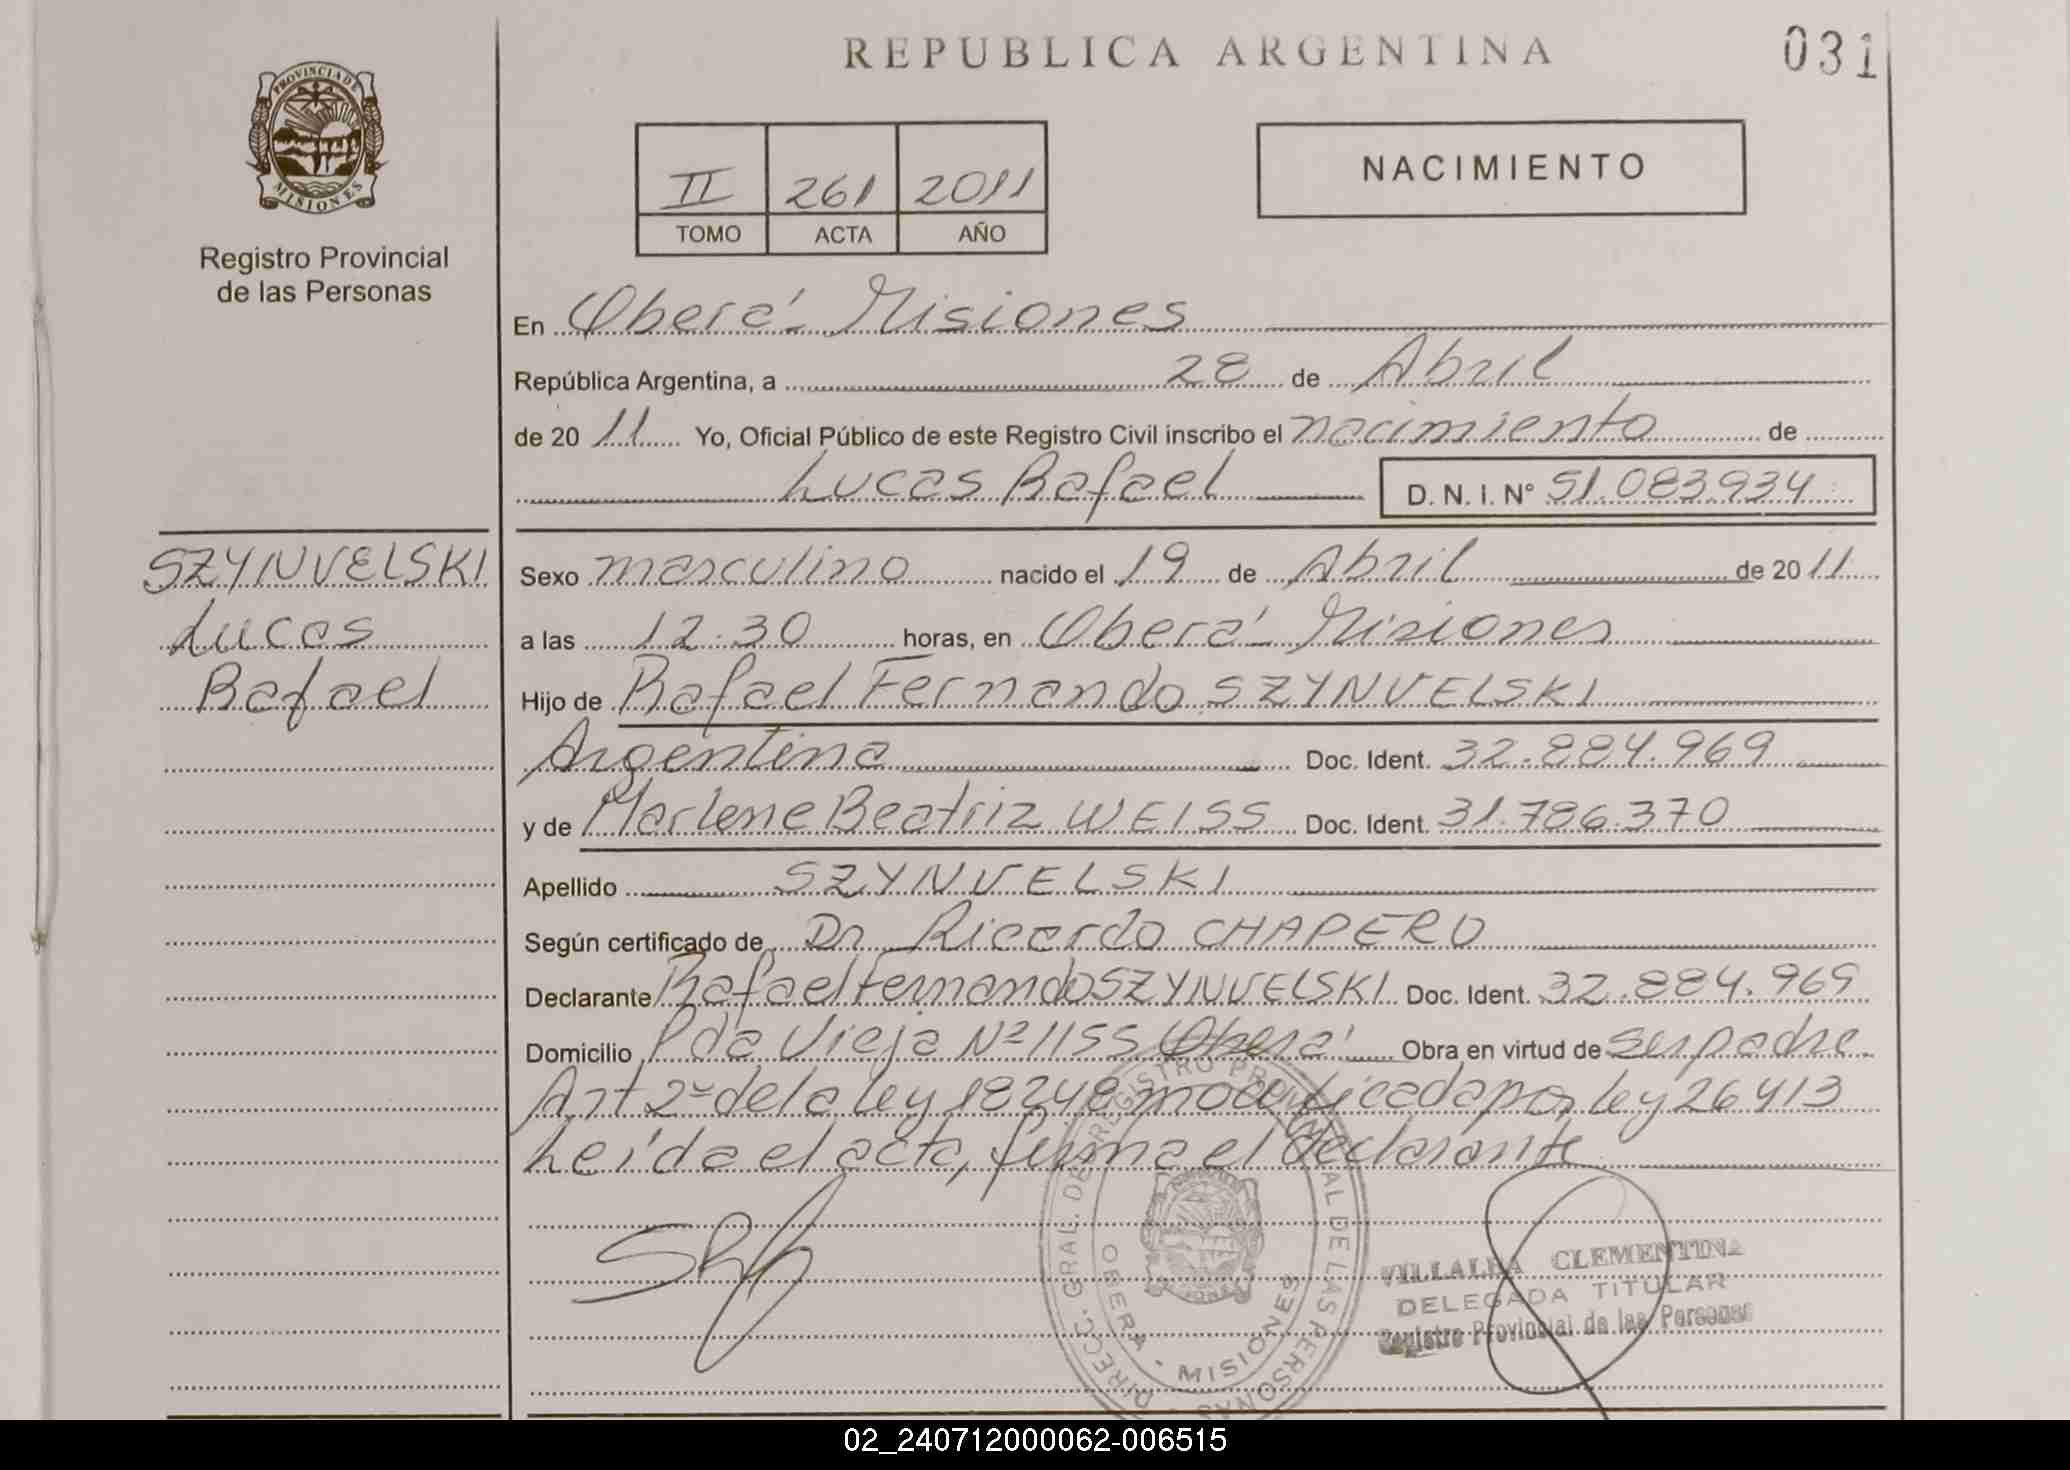 REPUBLICA ARGENTINA
031
PROVINCIA DE
MISIONES
Registro Provincial
de las Personas
II 261 2011
TOMO ACTA AÑO
NACIMIENTO
En Oberá Misiones
República Argentina, a 28 de Abril
de 20 11 Yo, Oficial Público de este Registro Civil inscribo el nacimiento de
Lucas Rafael D. N. I. N° 51.083.934
SZYNVELSKI
Lucas
Rafael
Sexo masculino nacido el 19 de Abril de 20 11
a las 12.30 horas, en Oberá Misiones
Hijo de Rafael Fernando SZYNVELSKI
Argentina Doc. Ident. 32.884.969
y de Marlene Beatriz WEISS Doc. Ident. 31.786.370
Apellido SZYNVELSKI
Según certificado de Dr Ricardo CHAPERO
Declarante Rafael Fernando SZYNVELSKI Doc. Ident. 32.884.969
Domicilio Pda Vieja Nº 1155 Oberá Obra en virtud de ser padre
Art 2º de la ley 18248 modificada por ley 26413
Leída el acta, firma el declarante
DIRECC. GRAL. DE REGISTRO PROVINCIAL DE LAS PERSONAS
OBERA - MISIONES
VILLALBA CLEMENTINA
DELEGADA TITULAR
Registro Provincial de las Personas
02_240712000062-006515